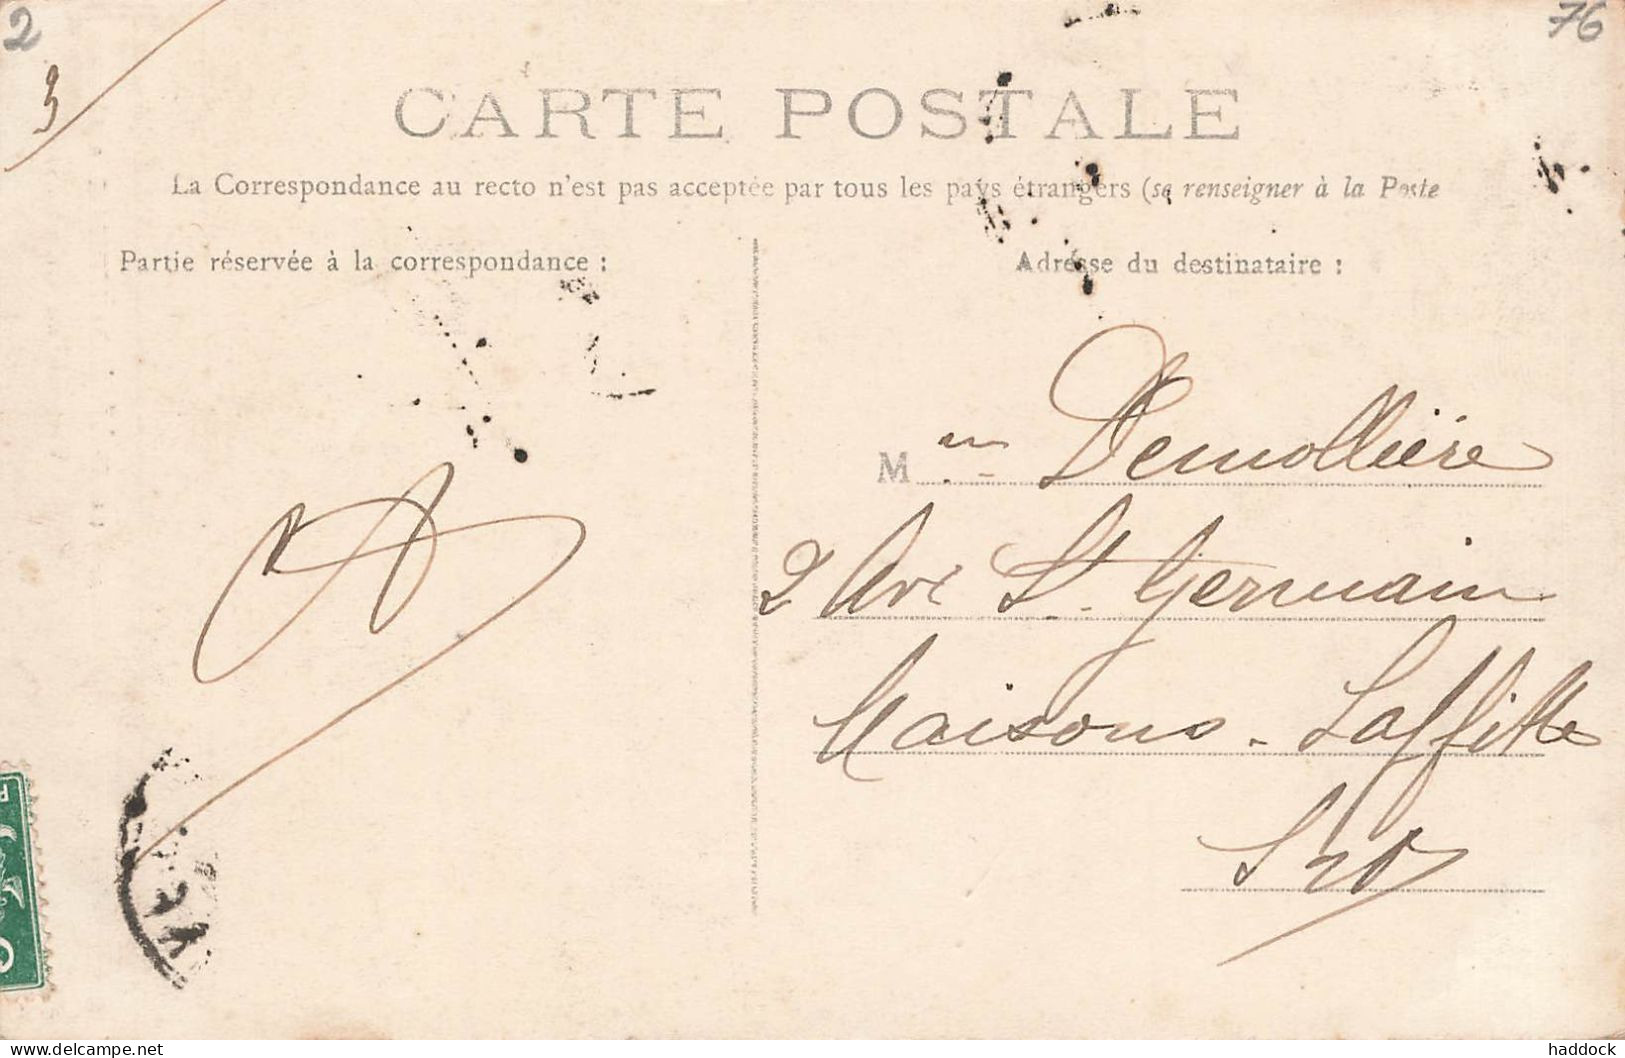 2
76
3
CARTE POSTALE
La Correspondance au recto n'est pas acceptée par tous les pays étrangers (se renseigner à la Poste
Partie réservée à la correspondance :
Adresse du destinataire :
M Demollière
2 Ave St. Germain
Maisons-Laffitte
S & O
haddock